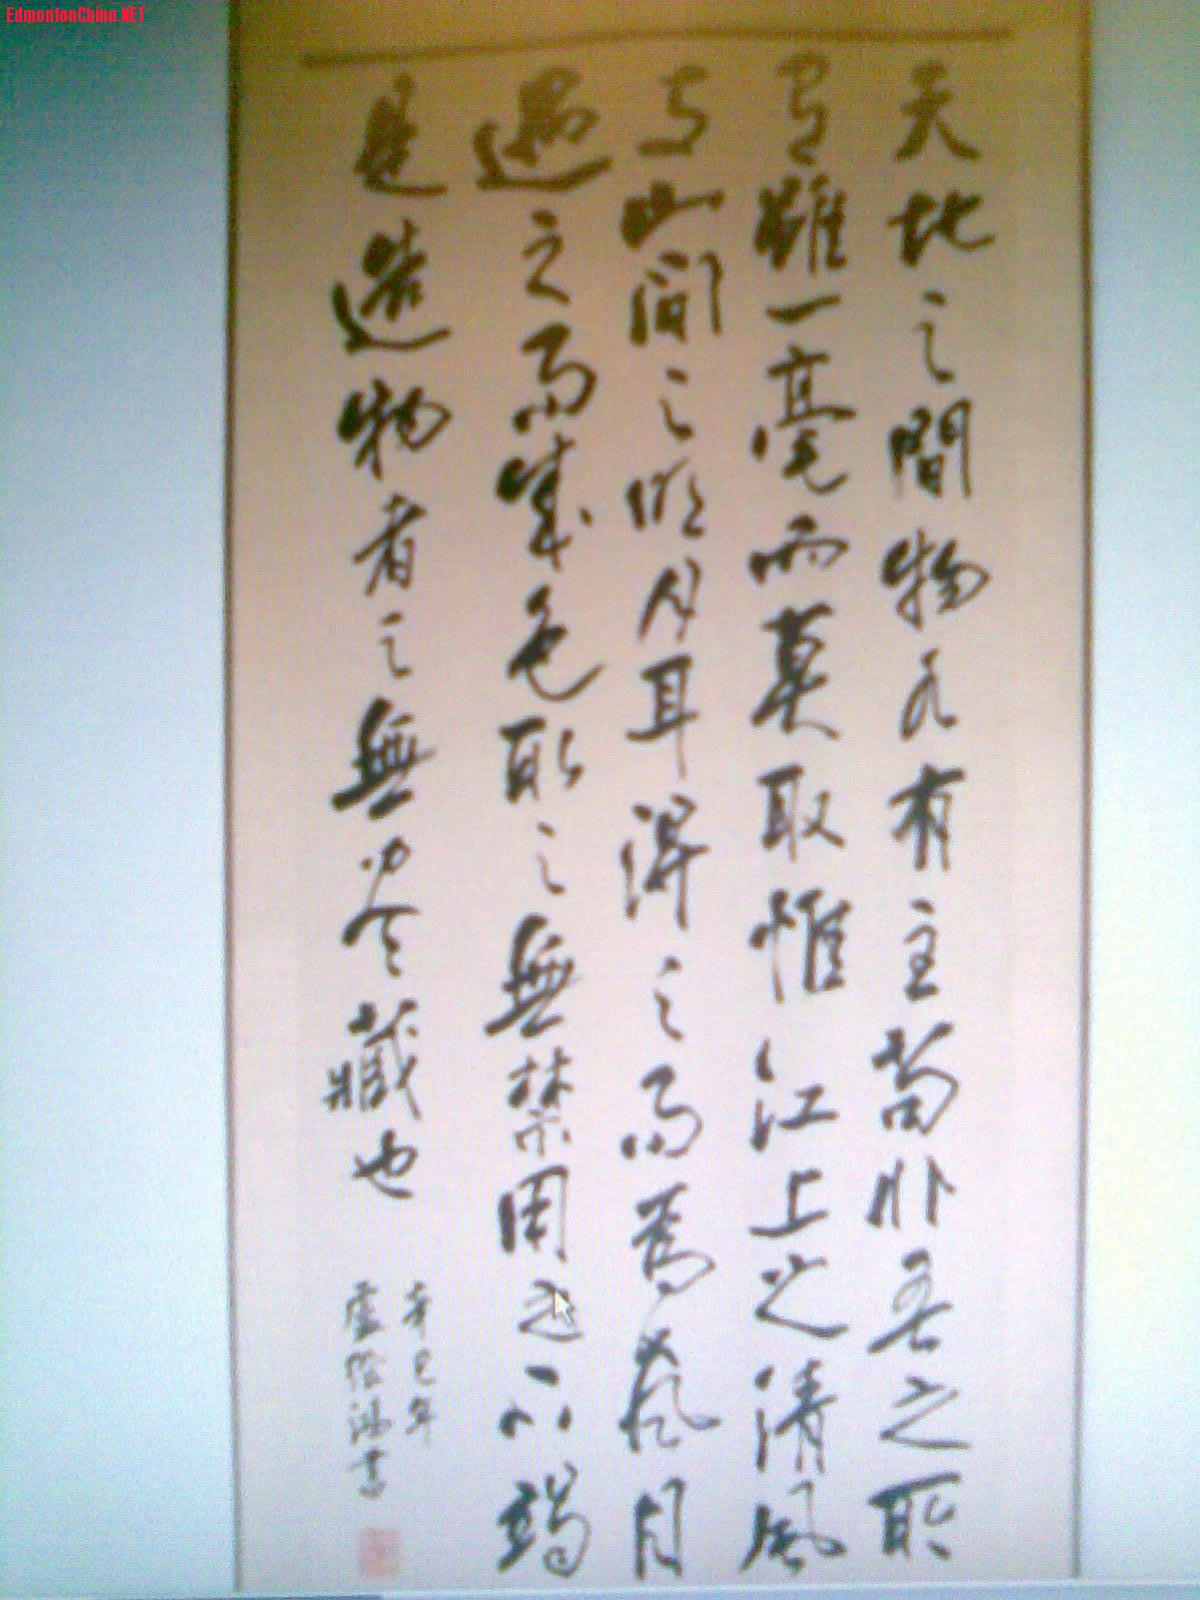 EdmontonChina.NET
天地之間物各有主苟非吾之所
有雖一毫而莫取惟江上之清風
与山间之明月耳得之而為聲目
遇之而成色取之無禁用之不竭
是造物者之無尽藏也
辛巳年
盧書